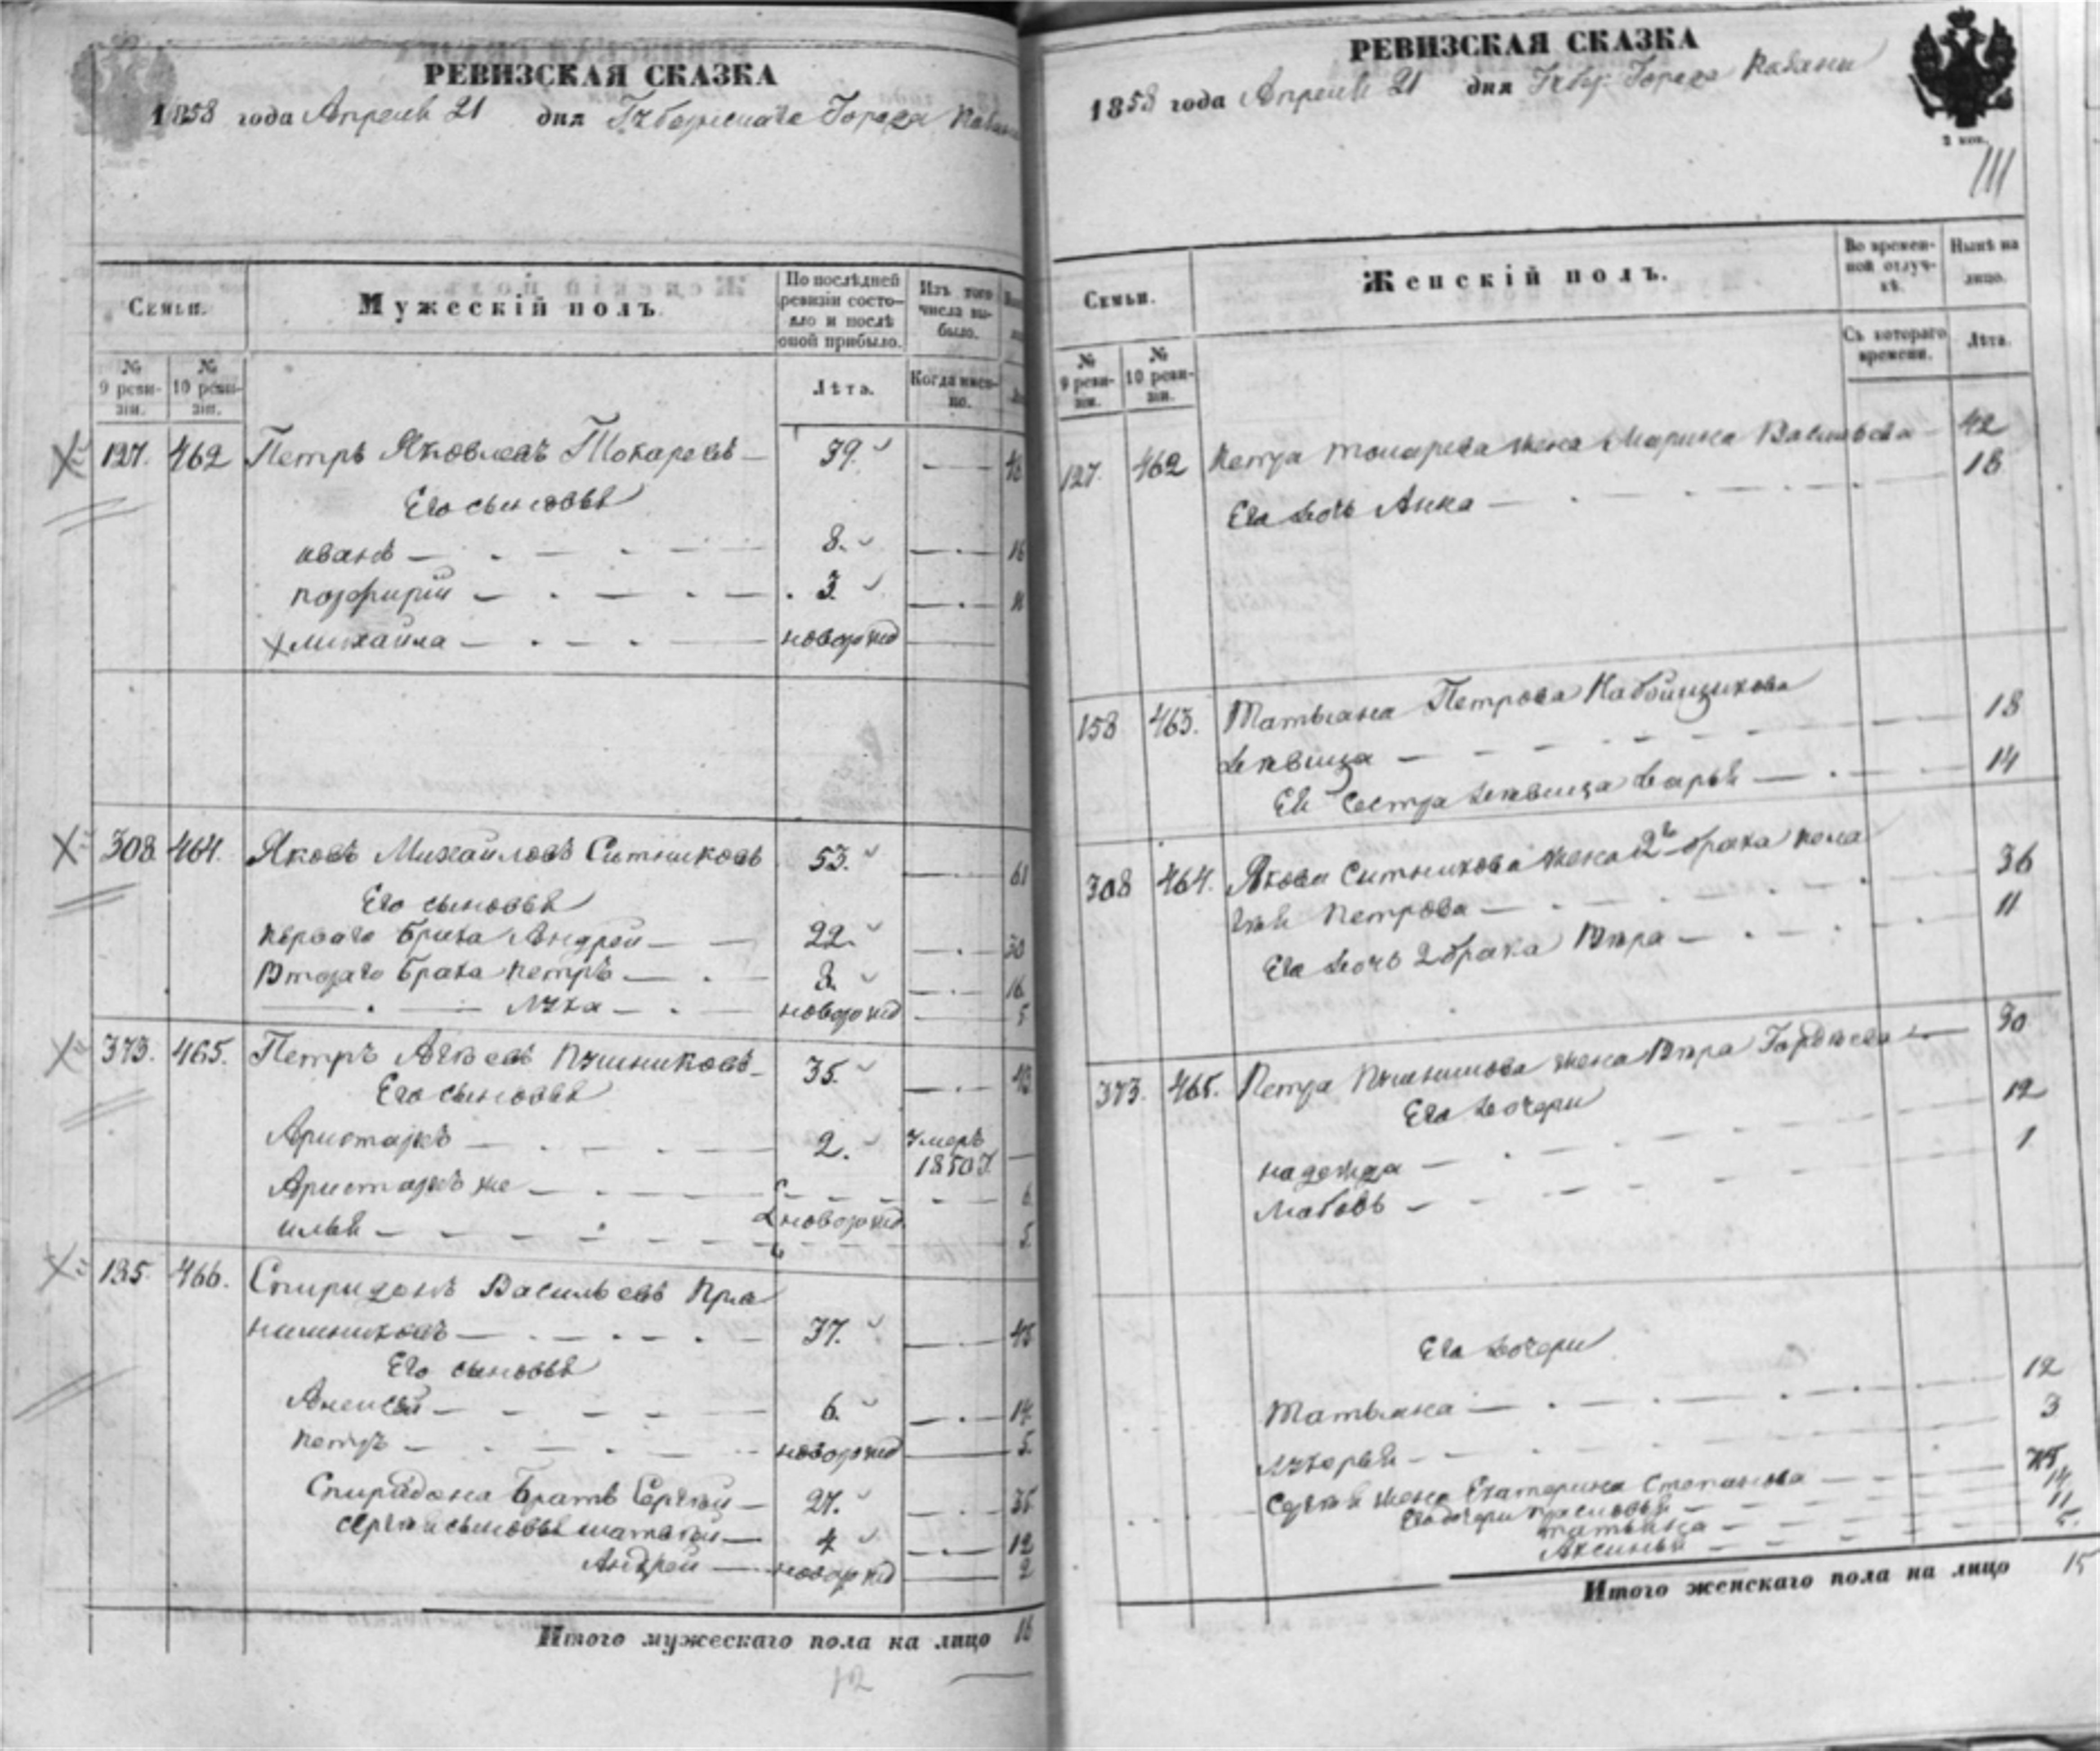 РЕВИЗСКАЯ СКАЗКА
1858 года Апреля 21 дня Губернскаго Города
Семьи.
Мужескій полъ
По послѣдней ревизіи состо-
яло и послѣ
оной прибыло.
Изъ того
числа вы-
было.
№
9 реви-
зіи.
№
10 реви-
зіи.
Лѣта.
Когда имен-
но.
127. 462 Петръ Яковлевъ Токаревъ 39.
Его сыновья
иванъ 8. 16
порфирій 3. 11
михайла новорожд
308 464. Яковъ Михайловъ Ситниковъ 53. 61
Его сыновья
перваго брака Андрей 22. 30
Втораго брака петръ 8. 16
Лука новорожд 5
373. 465. Петръ 35. 43
Его сыновья
Аристархъ 2. умеръ
1850 г.
Аристархъ же 6
новорожд
илья 5.
135. 466. Спиридонъ Васильевъ Пря
нишниковъ 37. 45
Его сыновья
Алексѣй 6. 14
петръ новорожд 5.
Спиридона братъ Сергѣй 27. 35
сергѣя сыновья матвѣй 4 12
Андрей новорожд 2
Итого мужескаго пола на лицо 16
12
РЕВИЗСКАЯ СКАЗКА
1858 года Апреля 21 дня Губер: Города Казани
2 коп.
111
Семьи.
Женскій полъ.
Во времен-
ной отлуч-
кѣ.
Нынѣ на
лицо.
№
9 реви-
зіи.
№
10 реви-
зіи.
Съ котораго
времени.
Лѣта.
127. 462 Петра токарева жена Марина Васильева 42
Его дочь Анна 18
158 463. Татьяна Петрова Набойщикова
девица 18
Ея сестра девица дарья 14
308 464. Якова Ситникова жена 2го брака пела
гѣя Петрова 36
Его дочь 2 брака Вѣра 11
373. 465. Петра жена Вѣра Гордѣева 30
Его дочери
надежда 12
Любовь 1
Его дочери
Татьяна 12
Лукерья 3
Сергѣя жена Екатерина Степанова
Его дочери 14
татьяна 11
Аксинья 5.
Итого женскаго пола на лицо 15